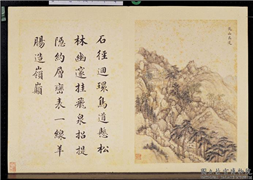 石徑迴環鳥道懸松
林幽邃挂飛泉招提
隱約層巒表一線羊
腸造嶺巔